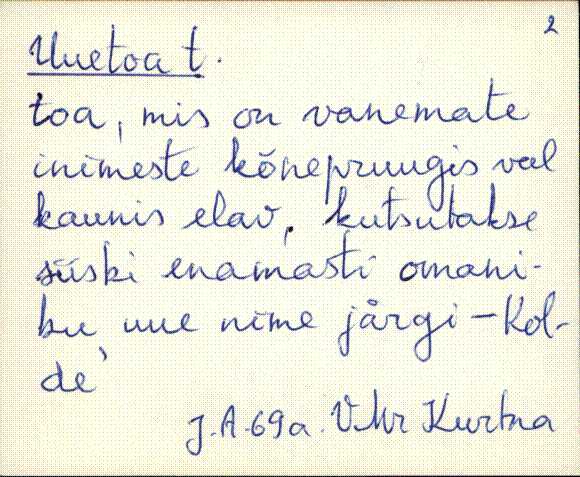 2
Uuetoa t.
toa, mis on vanemate
inimeste kõnepruugis val
kaunis elav, kutsutakse
siiski enamasti omani-
ku uue nime järgi - Kol-
de'
J.A. 69a. VMr Kurtna